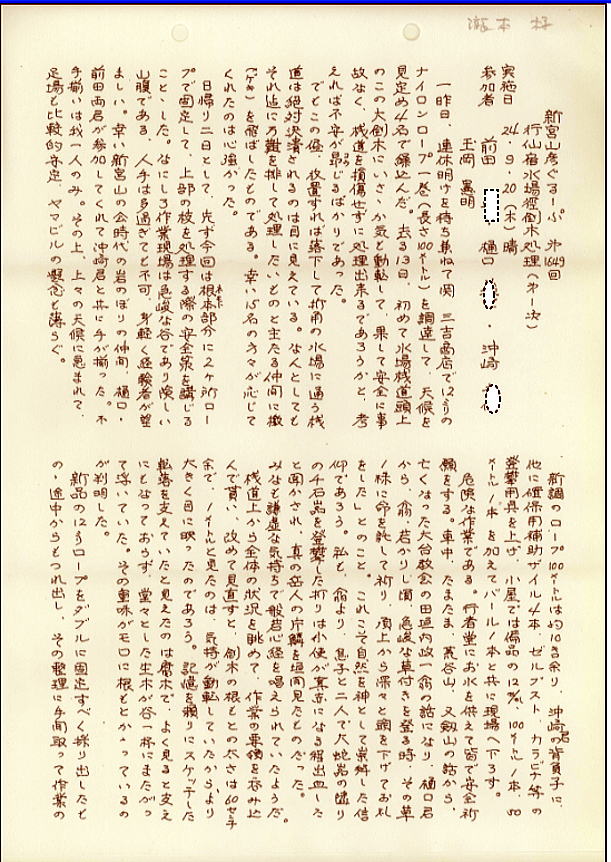 瀧本 好
新宮山彦ぐるーぷ 第1649回
行仙宿水場徑倒木処理(第一次)
実施日 24.9.20(木) 晴
参加者 前田 樋口 ・沖崎
玉岡 憲明
一昨日、連休明けを待ち兼ねて関 三吉商店で12㍉の
ナイロンロープ一巻(長さ100メートル)を調達して、天候を
見定め4名で繰込んだ。去る13日、初めて水場桟道頭上
のこの大倒木にいささか気と動転して、果して安全に事
故なく、桟道を損傷せずに処理出来るであろうかと、考
えれば不安が昂じるばかりであった。
でとこの侭、放置すれば落下して折角の水場に通う桟
道は絶対決潰されるのは目に見えている。な人としても
それ迄に万難を排して処理したいものと主たる仲間に檄
(ゲキ)を飛ばしたものである。幸い15名の方々が応じて
くれたのは心強かった。
日帰り二日として、先ず今回は根本部分に2ヶ所ロー
プで固定して、上部の枝を処理する際の安全策を講じる
こととした。なにしろ作業現場は急峻な谷であり険しい
山腹である。人手は多過ぎても不可、身軽く経験者が望
ましい。幸い新宮山の会時代の岩のぼりの仲間、樋口・
前田両君が参加してくれて沖崎君と共に手が揃った。不
手揃いは我一人のみ。その上、上々の天候に恵まれて、
足場も比較的安定、ヤマビルの懸念も薄らぐ。
新調のロープ100メートルは約10キロ余り、沖崎君の背負子に、
他に確保用補助ザイル4本、ゼルブスト、カラビナ等の
登攀用具を上げ、小屋では備品の12㍉、100メートル1本、50
メートル1本を加えてバール1本と共に現場へ下ろす。
危険な作業である。行者堂にお水を供えて皆で安全祈
願をする。車中、たまたま、蕎谷山、又剱山の話から、
亡くなった大台教会の田垣内政一翁の話になり、樋口君
から、翁、若かりし頃、急峻な草付きを登る時、その草
1株に命を託して祈り、頂上から深々と頭を下げてお礼
をした」とのこと、これこそ自然を神として崇拝した信
仰であろう。私も、翁より、息子と二人で大蛇嵓の隣り
の千石嵓を登攀した折りは小便が真赤になる程出血した
と聞かされ、真の岳人の片鱗を垣間見たものだった。
みなも謙虚な気持ちで般若心経を唱えられていたようだ。
桟道上から全体の状況を眺めて、作業の要領を呑み込
んで貰い、改めて見直すと、倒木の根もとの太さは60センチ
余で、1メートルと見たのは、気持が動転していたから、より
大きく目に映ったのであろう。記憶を頼りにスケッチした
転落を支えていたと見えたのは腐木で、よく見ると支え
にもなっておらず、堂々とした生木が谷一杯にまたがっ
て浮いていた。その重味がモロに根もとかゝっているの
が判明した。
新品の12㍉ロープをダブルに固定すべく繰り出したも
の・途中からもつれ出し、その整理に手間取って作業の